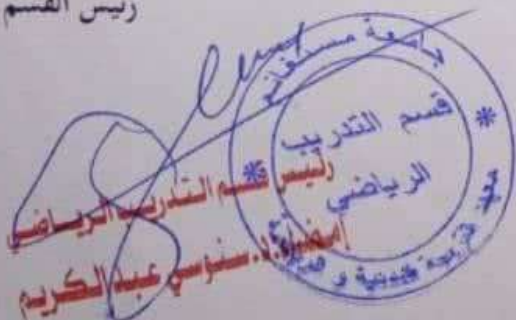 رئيس القسم
جامعة مستغانم
قسم التدريب
الرياضي
معهد التربية البدنية و
رئيس قسم التدريب الرياضي
إمضاء: د. سنوسي عبد الكريم